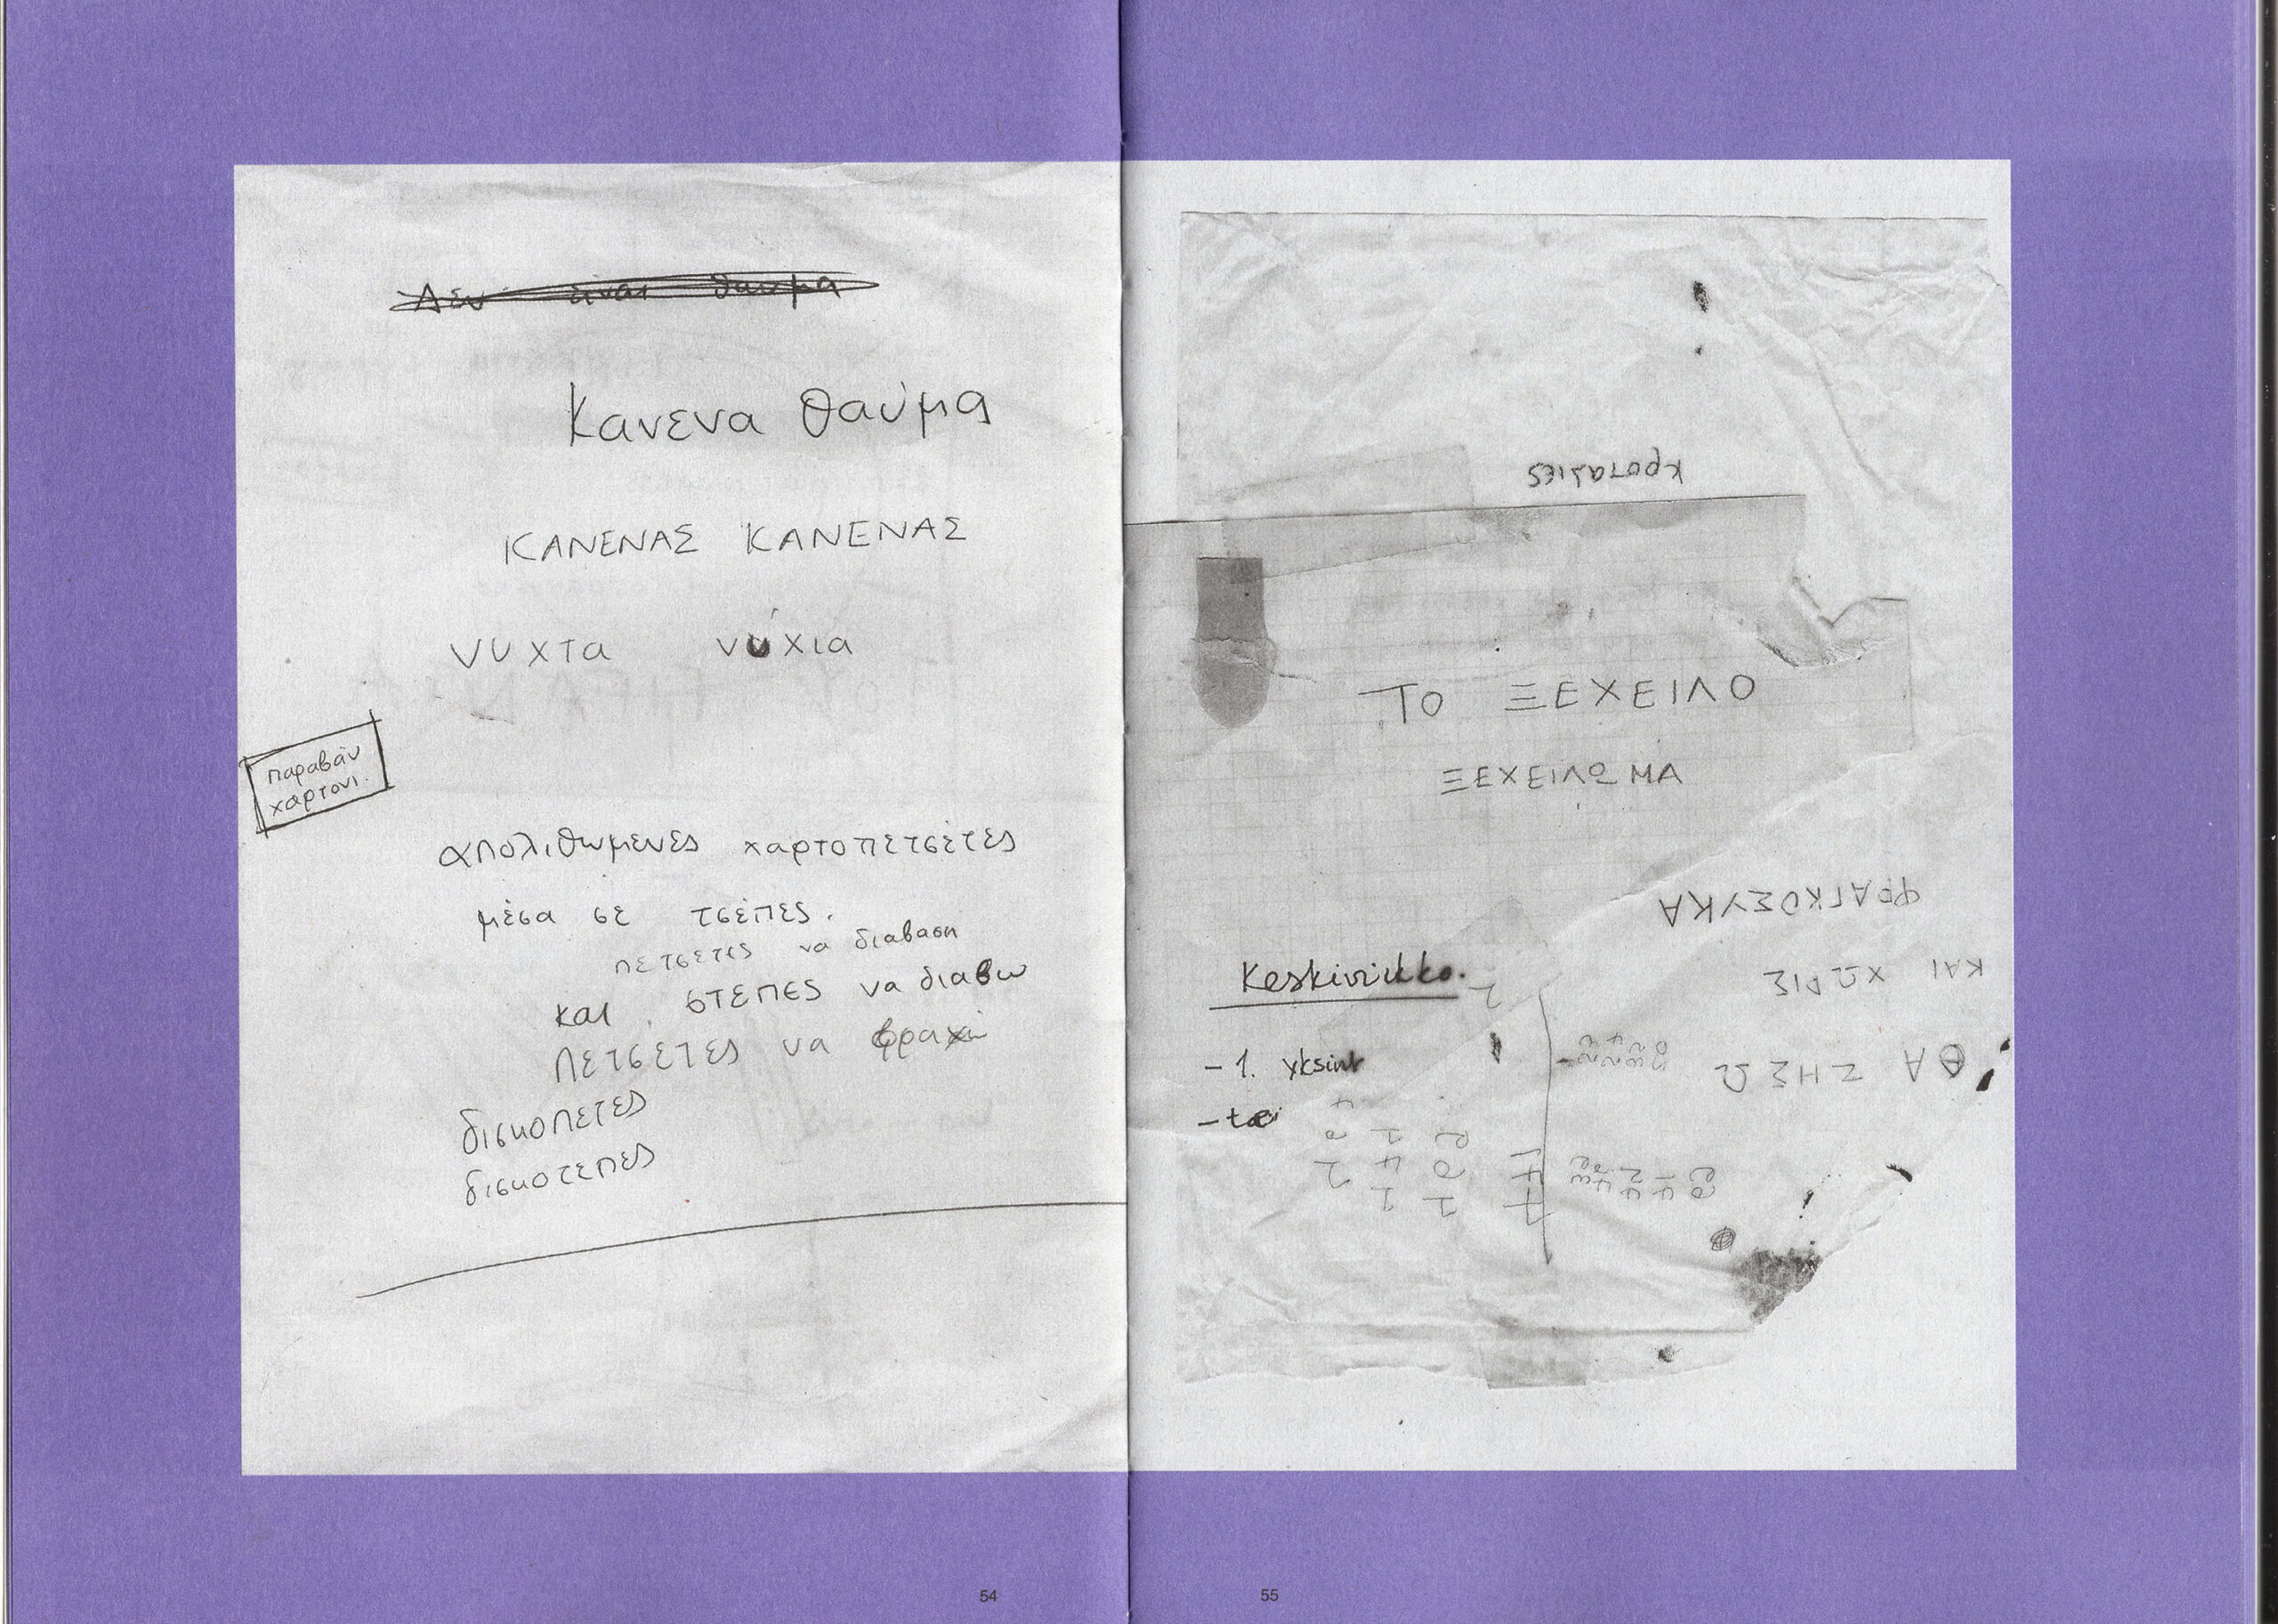 Δεν είναι θαυμα
Κανενα θαύμα
ΚΑΝΕΝΑΣ ΚΑΝΕΝΑΣ
νυχτα νύχια
παραβάν
χαρτονι.
απολιθωμενες χαρτοπετσέτες
μέσα σε τσέπες.
πετσετες να διαβαση
και στεπες να διαβω
πετσετες να
δισκοπετες
δισκοτεπες
54
κροταλιες
ΤΟ ΞΕΧΕΙΛΟ
ΞΕΧΕΙΛΩΜΑ
ΘΑ ΖΗΣΩ
ΚΑΙ ΧΩΡΙΣ
ΦΡΑΓΚΟΣΥΚΑ
Keskiviikko.
- 1. yksin
- tai
55